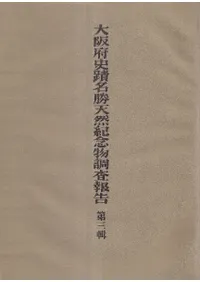 大阪府史蹟名勝天然紀念物調査報告
第三輯